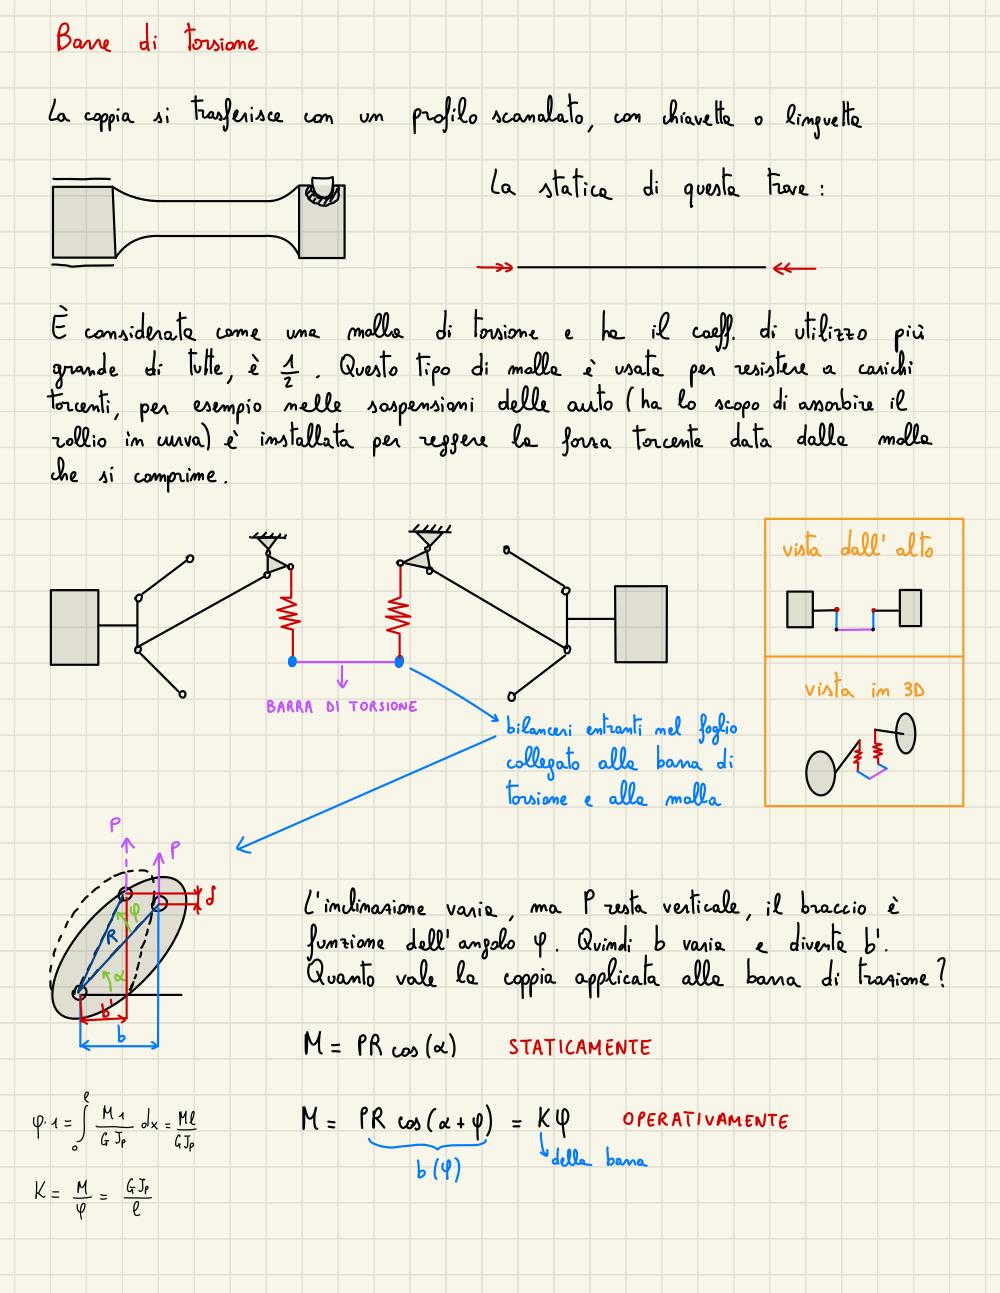 Barre di torsione
La coppia si trasferisce con un profilo scanalato, con chiavetta o linguetta
La statica di questa trave :
È considerata come una molla di torsione e ha il coeff. di utilizzo più
grande di tutte, è 1/2 . Questo tipo di molla è usata per resistere a carichi
torcenti, per esempio nelle sospensioni delle auto (ha lo scopo di assorbire il
rollio in curva) è installata per reggere la forza torcente data dalla molla
che si comprime.
vista dall' alto
vista in 3D
BARRA DI TORSIONE
bilanceri entranti nel foglio
collegato alla barra di
torsione e alla molla
P
P
δ
φ
R
α
b'
b
L'inclinazione varia, ma P resta verticale, il braccio è
funzione dell'angolo φ. Quindi b varia e diventa b'.
Quanto vale la coppia applicata alla barra di trazione?
M = PR cos(α) STATICAMENTE
M = PR cos(α+φ) = Kφ OPERATIVAMENTE
b(φ)
della barra
φ·1 = ∫₀ˡ M1/GJp dx = Ml/GJp
K = M/φ = GJp/l